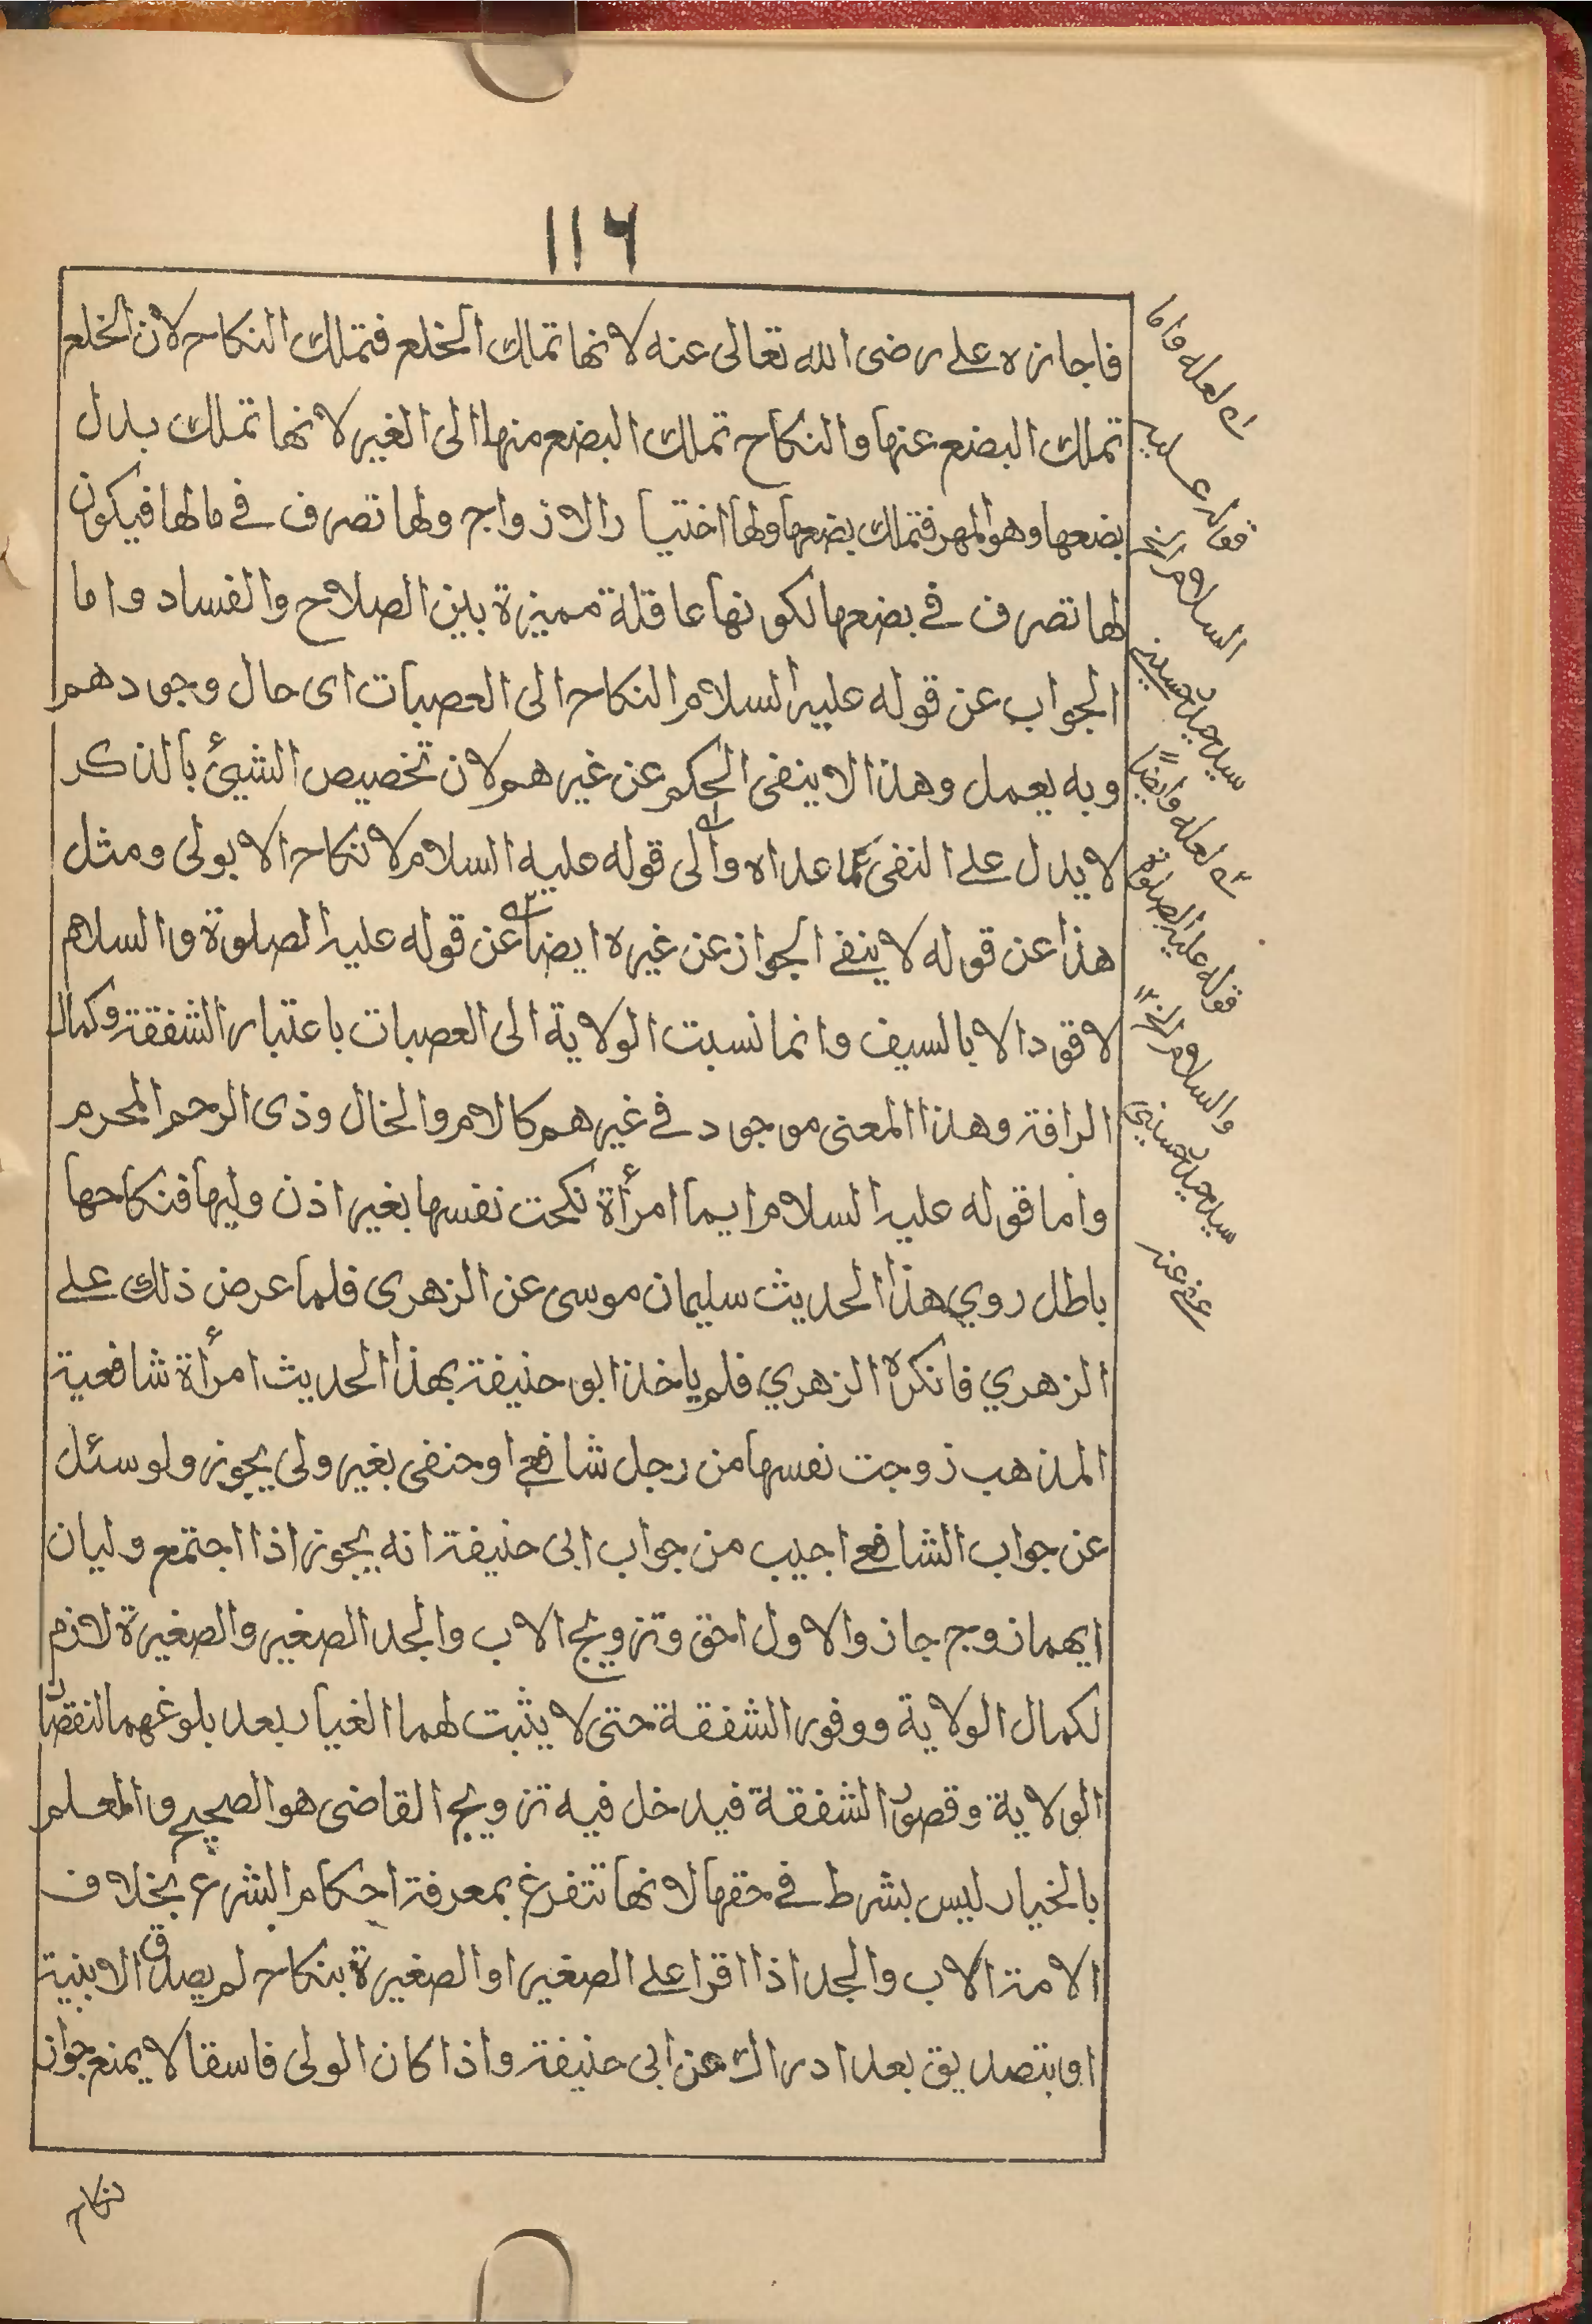 ١١٦
فاجازه علے رضی الله تعالی عنه لانها تملك الخلع فتملك النکاح لان الخلع
تملك البضع عنها والنکاح تملك البضع منها الی الغیر لانها تملك بدل
بضعها وهو المهر فتملك بضعها ولها اختیار الازواج ولها تصرف فے مالها فیکون
لها تصرف فے بضعها لکونها عاقلة ممیزة بین الصلاح والفساد واما
الجواب عن قوله علیه السلام النکاح الی العصبات ای حال وجودهم
وبه یعمل وهذا لا ینفی الحکم عن غیرهم لان تخصیص الشیئ بالذکر
لا یدل علے النفی عما عداه والی قوله علیه السلام لا نکاح الا بولی ومثل
هذا عن قوله لا ینفے الجواز عن غیره ایضا عن قوله علیه الصلوة والسلام
لا قود الا بالسیف وانما نسبت الولایة الی العصبات باعتبار الشفقة وکمال
الرافة وهذا المعنی موجود فے غیرهم کالام والخال وذی الرحم المحرم
واما قوله علیه السلام ایما امرأة نکحت نفسها بغیر اذن ولیها فنکاحها
باطل روي هذا الحدیث سلیمان موسی عن الزهری فلما عرض ذلك علے
الزهري فانکره الزهري فلم یاخذ ابو حنیفة بهذا الحدیث امرأة شافعیة
المذهب زوجت نفسها من رجل شافعے او حنفی بغیر ولی یجوز ولو سئل
عن جواب الشافعے اجیب من جواب ابی حنیفة انه یجوز اذا اجتمع ولیان
ایهما زوج جاز والاول احق وتزویج الاب والجد الصغیر والصغیرة لازم
لکمال الولایة ووفور الشفقة حتی لا یثبت لهما الغیار بعد بلوغهما لنقصان
الولایة وقصور الشفقة فیدخل فیه تزویج القاضی هو الصحیح والمعلم
بالخیار لیس بشرط فے حقها لانها تتفرغ بمعرفة احکام الشرع بخلاف
الامة الاب والجد اذا اقرا علے الصغیر او الصغیرة بنکاح لم یصدق الا ببنیة
او بتصدیق بعد ادراك عن ابی حنیفة واذا کان الولی فاسقا لا یمنع جواز
لعله واما
قوله علیه
السلام الخ
سید حسینے
لعله وایضاً
قوله علیه الصلوة
والسلام الخ ١٢
سید حسینی
عفی عنه
نکاح